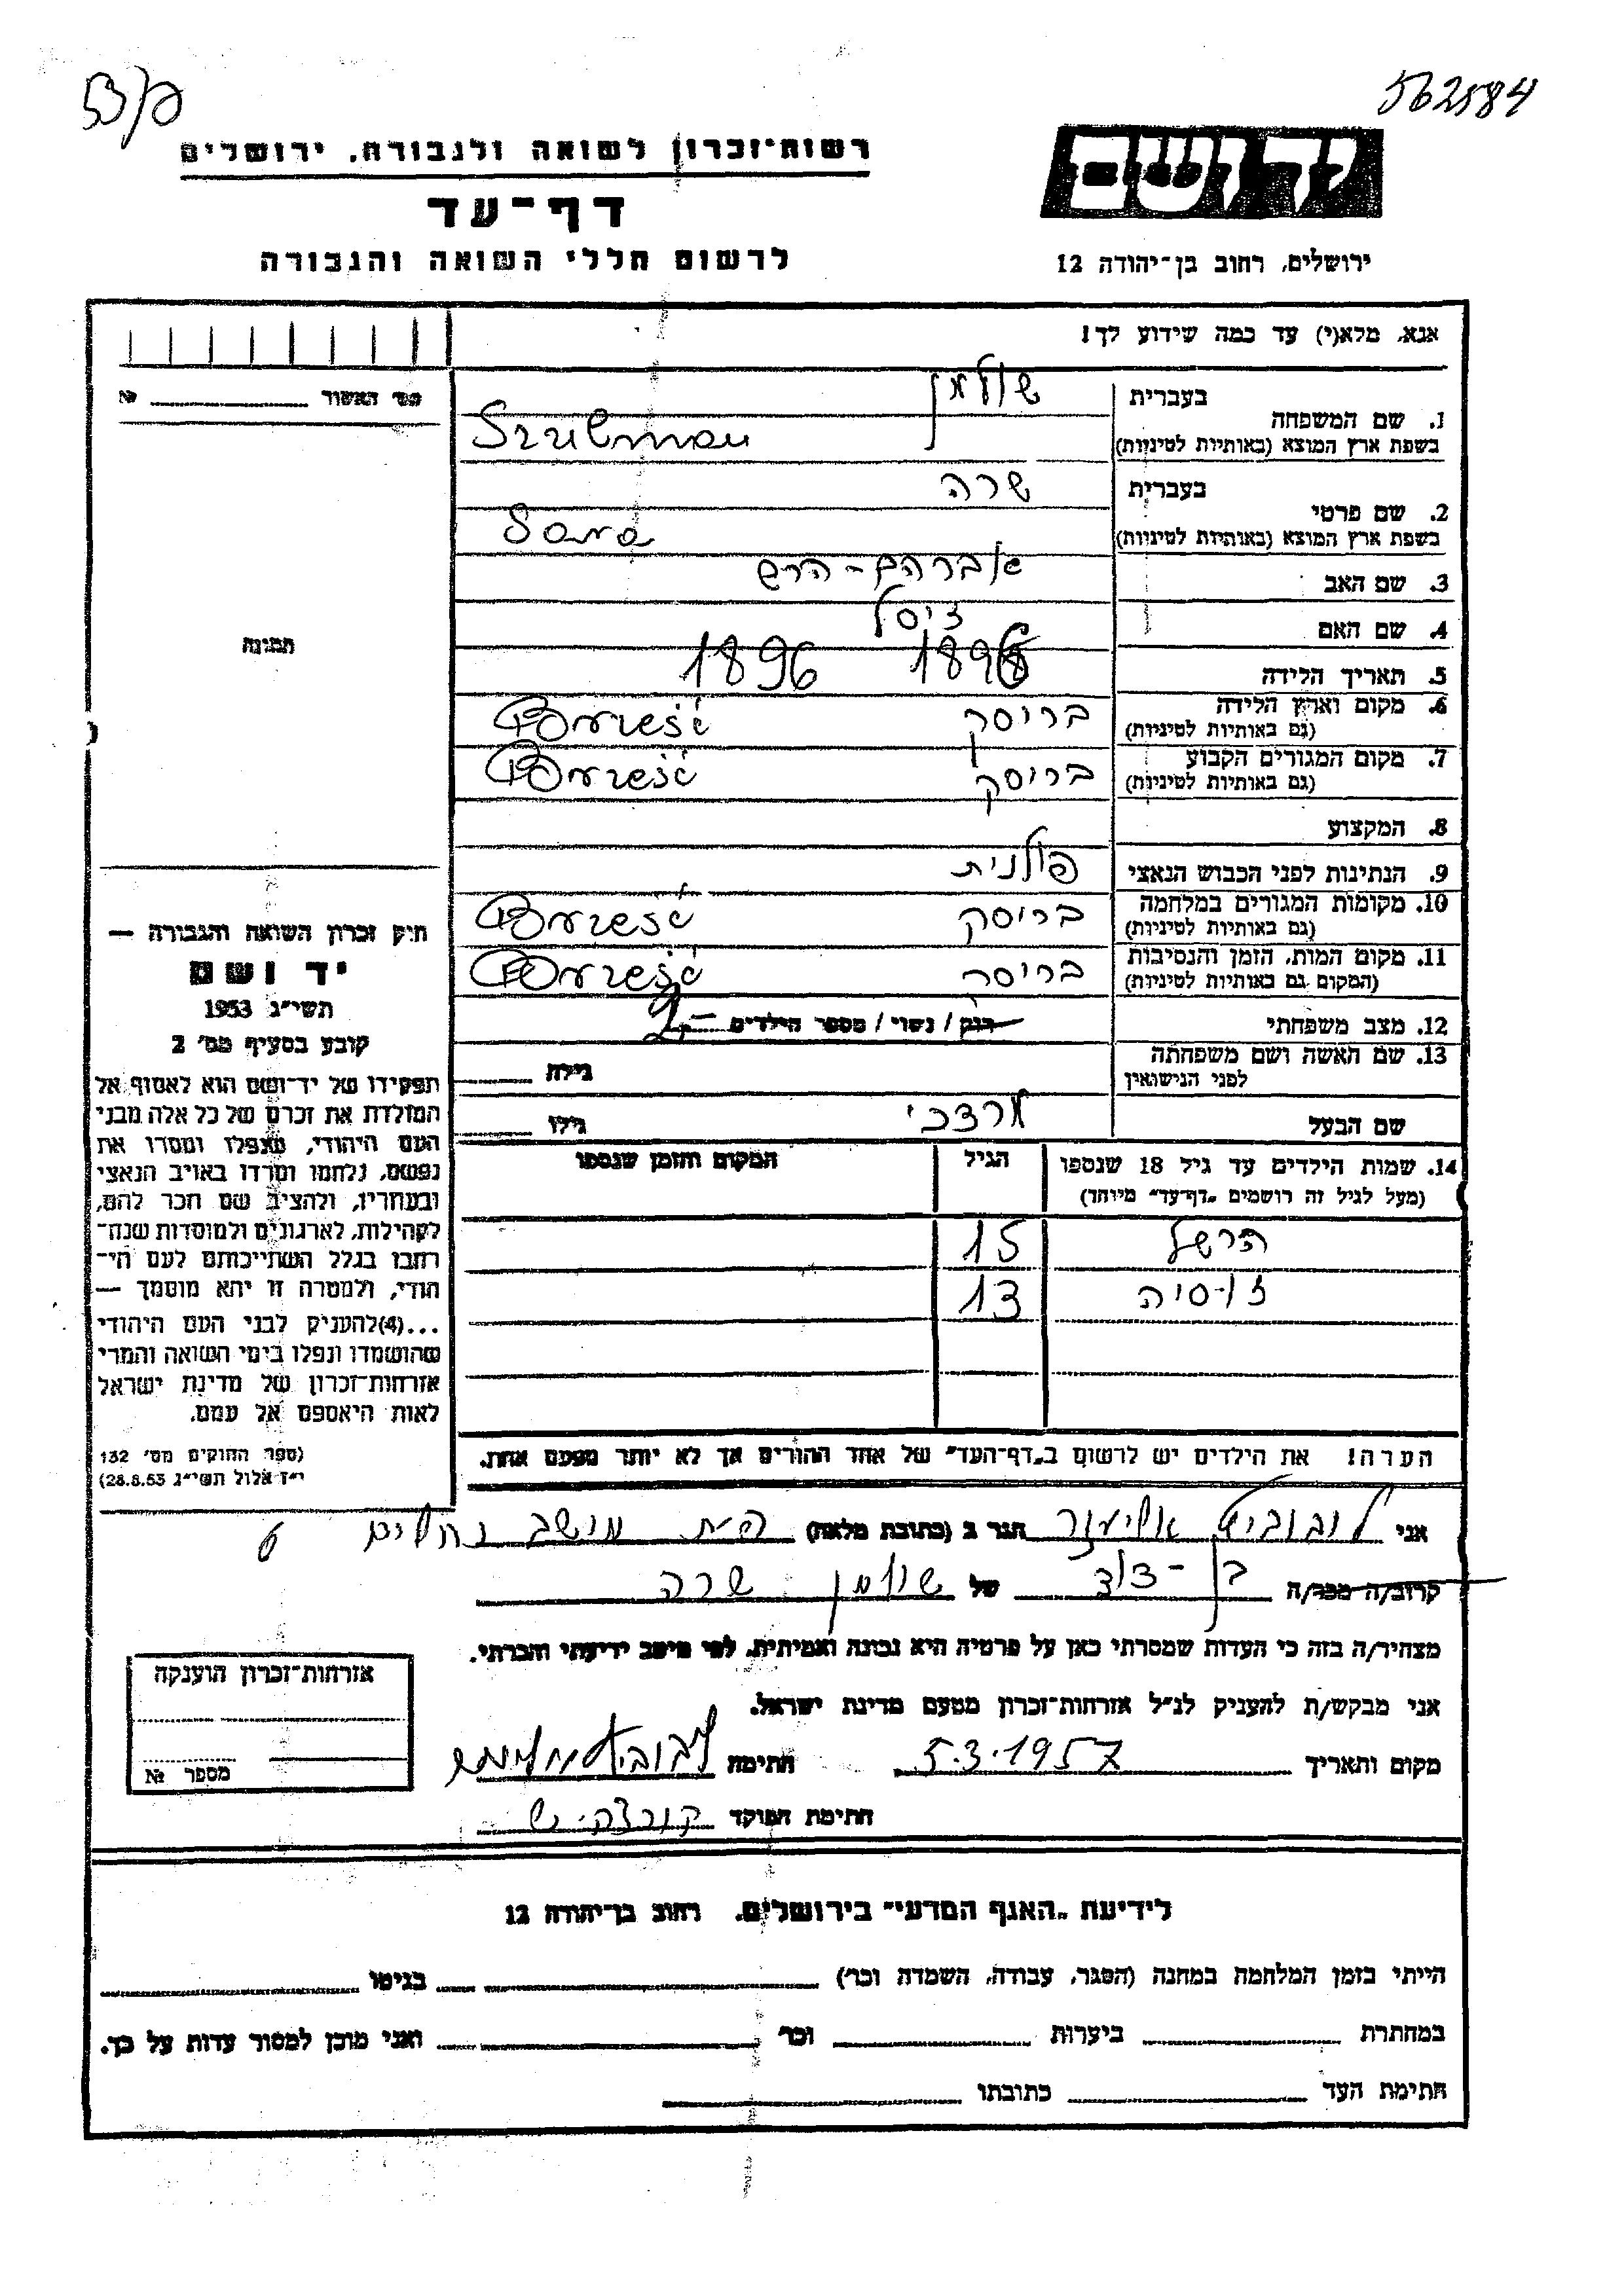 562584
רשות-זכרון לשואה ולגבורה, ירושלים
יד ושם
דף-עד
לרשום חללי השואה והגבורה
ירושלים, רחוב בן-יהודה 12
אנא, מלא(י) עד כמה שידוע לך!
מס' האשור № 
1. שם המשפחה
בעברית שולמן
בשפת ארץ המוצא (באותיות לטיניות) Szulman
2. שם פרטי
בעברית שרה
בשפת ארץ המוצא (באותיות לטיניות) Sara
3. שם האב אברהם-הרש
4. שם האם ציסל
תמונה
5. תאריך הלידה 1896 1896
6. מקום וארץ הלידה (גם באותיות לטיניות) בריסק Brześć
7. מקום המגורים הקבוע (גם באותיות לטיניות) בריסק Brześć
8. המקצוע
9. הנתינות לפני הכבוש הנאצי פולנית
10. מקומות המגורים במלחמה (גם באותיות לטיניות) בריסק Brześć
11. מקום המות, הזמן והנסיבות (המקום גם באותיות לטיניות) בריסק Brześć
12. מצב משפחתי רווק / נשוי / מספר הילדים 2
13. שם האשה ושם משפחתה לפני הנישואין גילה
שם הבעל מרדכי גילו
14. שמות הילדים עד גיל 18 שנספו הגיל המקום והזמן שנספו
(מעל לגיל זה רושמים "דף-עד" מיוחד)
הרשל 15
זוסיה 13
הערה! את הילדים יש לרשום ב"דף-העד" של אחד ההורים אך לא יותר מפעם אחת.
חוק זכרון השואה והגבורה —
יד ושם
תשי"ג 1953
קובע בסעיף מס' 2
תפקידו של יד-ושם הוא לאסוף אל
המולדת את זכרם של כל אלה מבני
העם היהודי, שנפלו ומסרו את
נפשם, נלחמו ומרדו באויב הנאצי
ובעוזריו, ולהציב שם וזכר להם,
לקהילות, לארגונים ולמוסדות שנח-
רבו בגלל השתייכותם לעם הי-
הודי, ולמטרה זו יהא מוסמך —
...(4) להעניק לבני העם היהודי
שהושמדו ונפלו בימי השואה והמרי
אזרחות-זכרון של מדינת ישראל
לאות היאספם אל עמם.
(ספר החוקים מס' 132
י"ז אלול תשי"ג 28.8.53)
אני ליבוביץ אליעזר הגר ב (כתובת מלאה) מושב נחלים
קרוב/ה מכר/ה בן-דוד של שולמן שרה
מצהיר/ה בזה כי העדות שמסרתי כאן על פרטיה היא נכונה ואמיתית, לפי מיטב ידיעתי והכרתי.
אני מבקש/ת להעניק לנ"ל אזרחות-זכרון מטעם מדינת ישראל.
מקום ותאריך 5.3.1957 חתימה
חתימת הפוקד
אזרחות-זכרון הוענקה
מספר №
לידיעת "האגף המדעי" בירושלים, רחוב בן-יהודה 12
הייתי בזמן המלחמה במחנה (הסגר, עבודה, השמדה וכו') בגיטו
במחתרת ביערות וכו' ואני מוכן למסור עדות על כך.
חתימת העד כתובתו